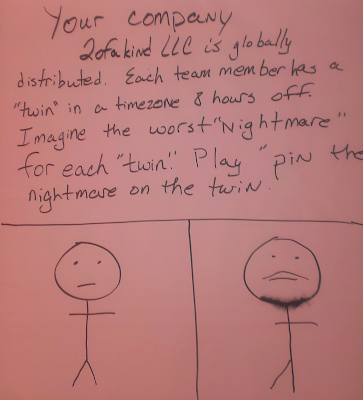 Your company
2ofakind LLC is globally
distributed. Each team member has a
"twin" in a timezone 8 hours off.
Imagine the worst "Nightmare"
for each "twin!" Play "pin the
nightmare on the twin.